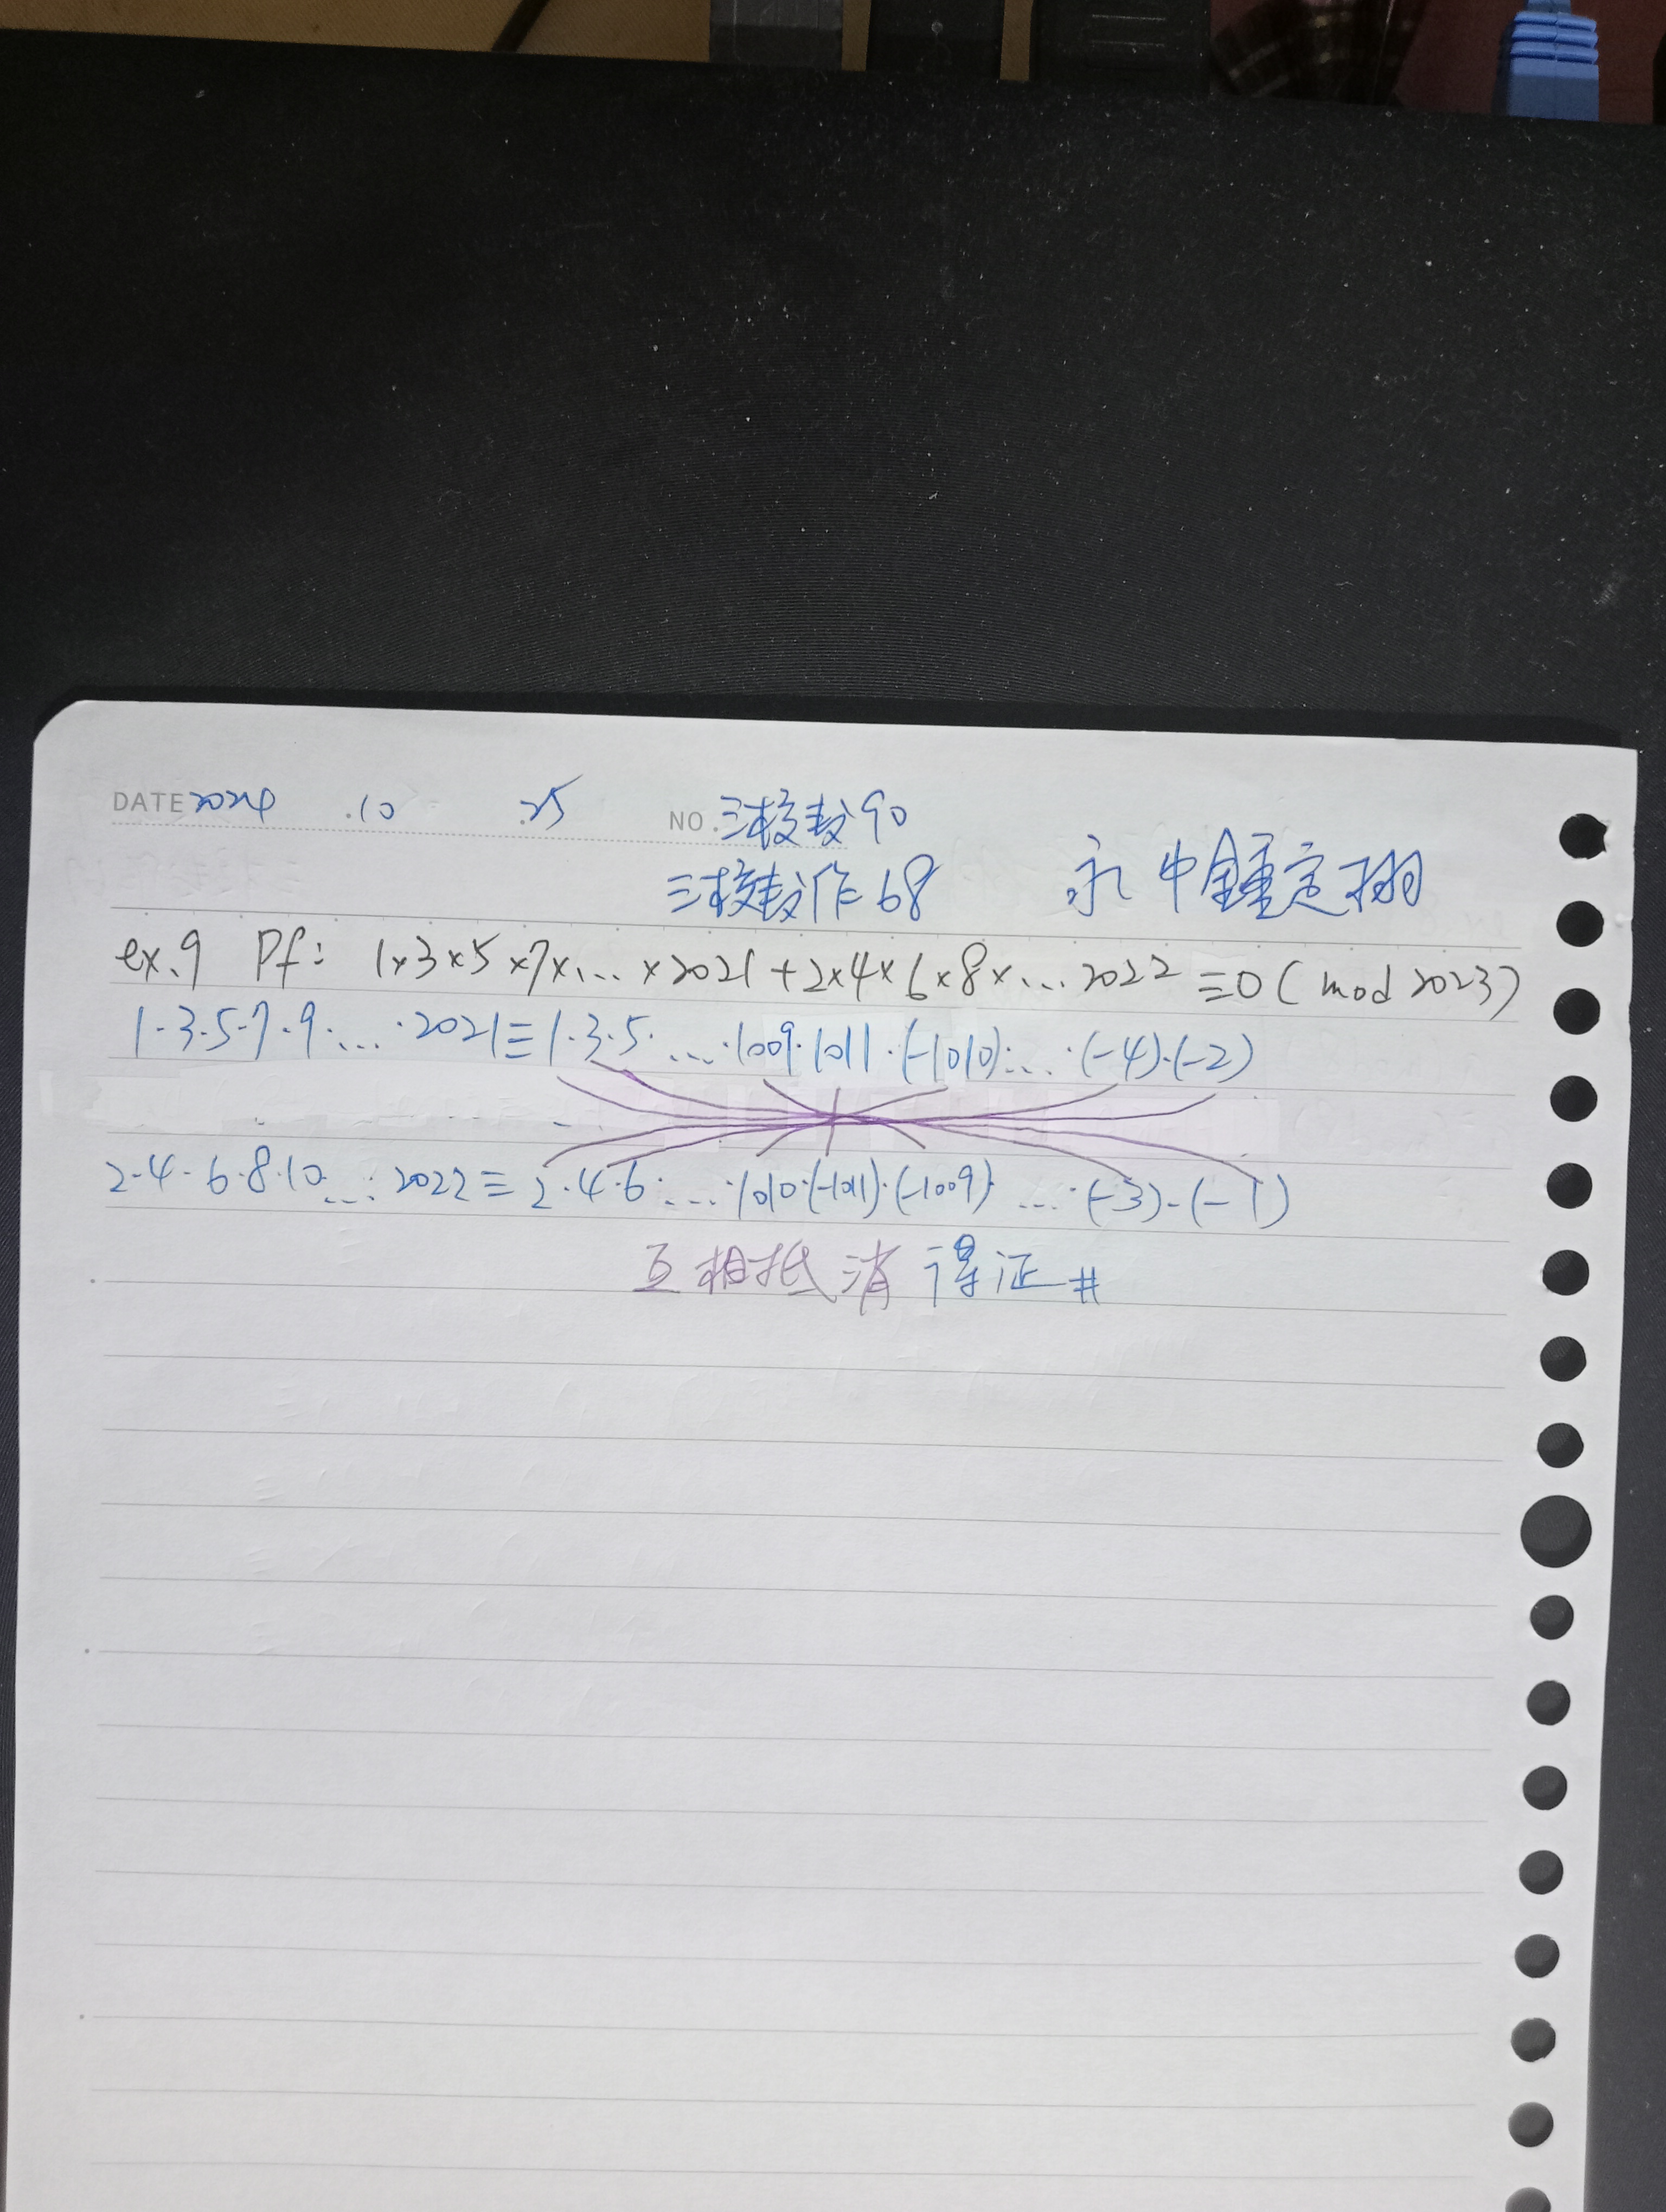 DATE 2024 .10 .25 NO. 三棱教90
三棱教作68 永中鍾定栩
ex.9 Pf: 1×3×5×7×...×2021+2×4×6×8×...2022≡0(mod 2023)
1·3·5·7·9·...·2021≡1·3·5·...·1009·1011·(-1010)·...·(-4)·(-2)
2·4·6·8·10·...·2022≡2·4·6·...·1010·(-1011)·(-1009)·...·(-3)·(-1)
互相抵消 得证#